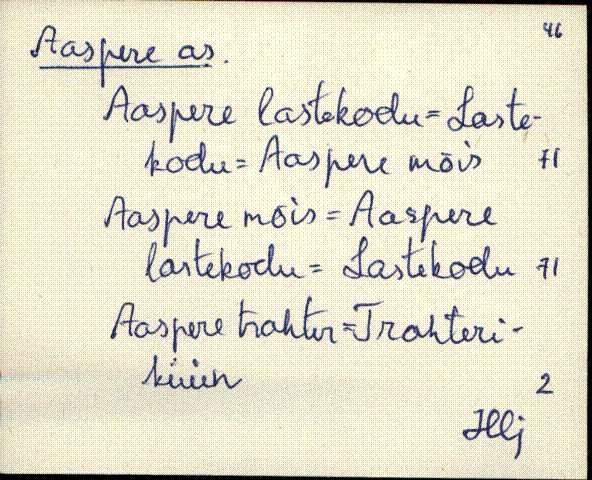 46
Aaspere as.
Aaspere lastekodu = Laste-
kodu = Aaspere mõis 71
Aaspere mõis = Aaspere
lastekodu = Lastekodu 71
Aaspere trahter = Trahteri-
küün 2